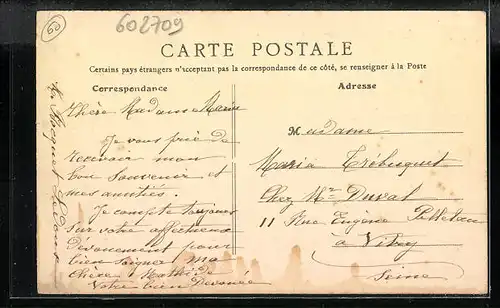 60
602709
CARTE POSTALE
Certains pays étrangers n'acceptant pas la correspondance de ce côté, se renseigner à la Poste
Correspondance
Chère Madame Maria
Je vous prie de
recevoir mon
bon souvenir et
mes amitiés.
Je compte toujours
sur votre affectueux
dévouement pour
bien soigner ma
chère Mathilde
Votre bien Dévouée
Adresse
Madame
Maria Trébuquet
Chez Mr Duval
11 Rue Eugène Pelletan
à Vitry
Seine